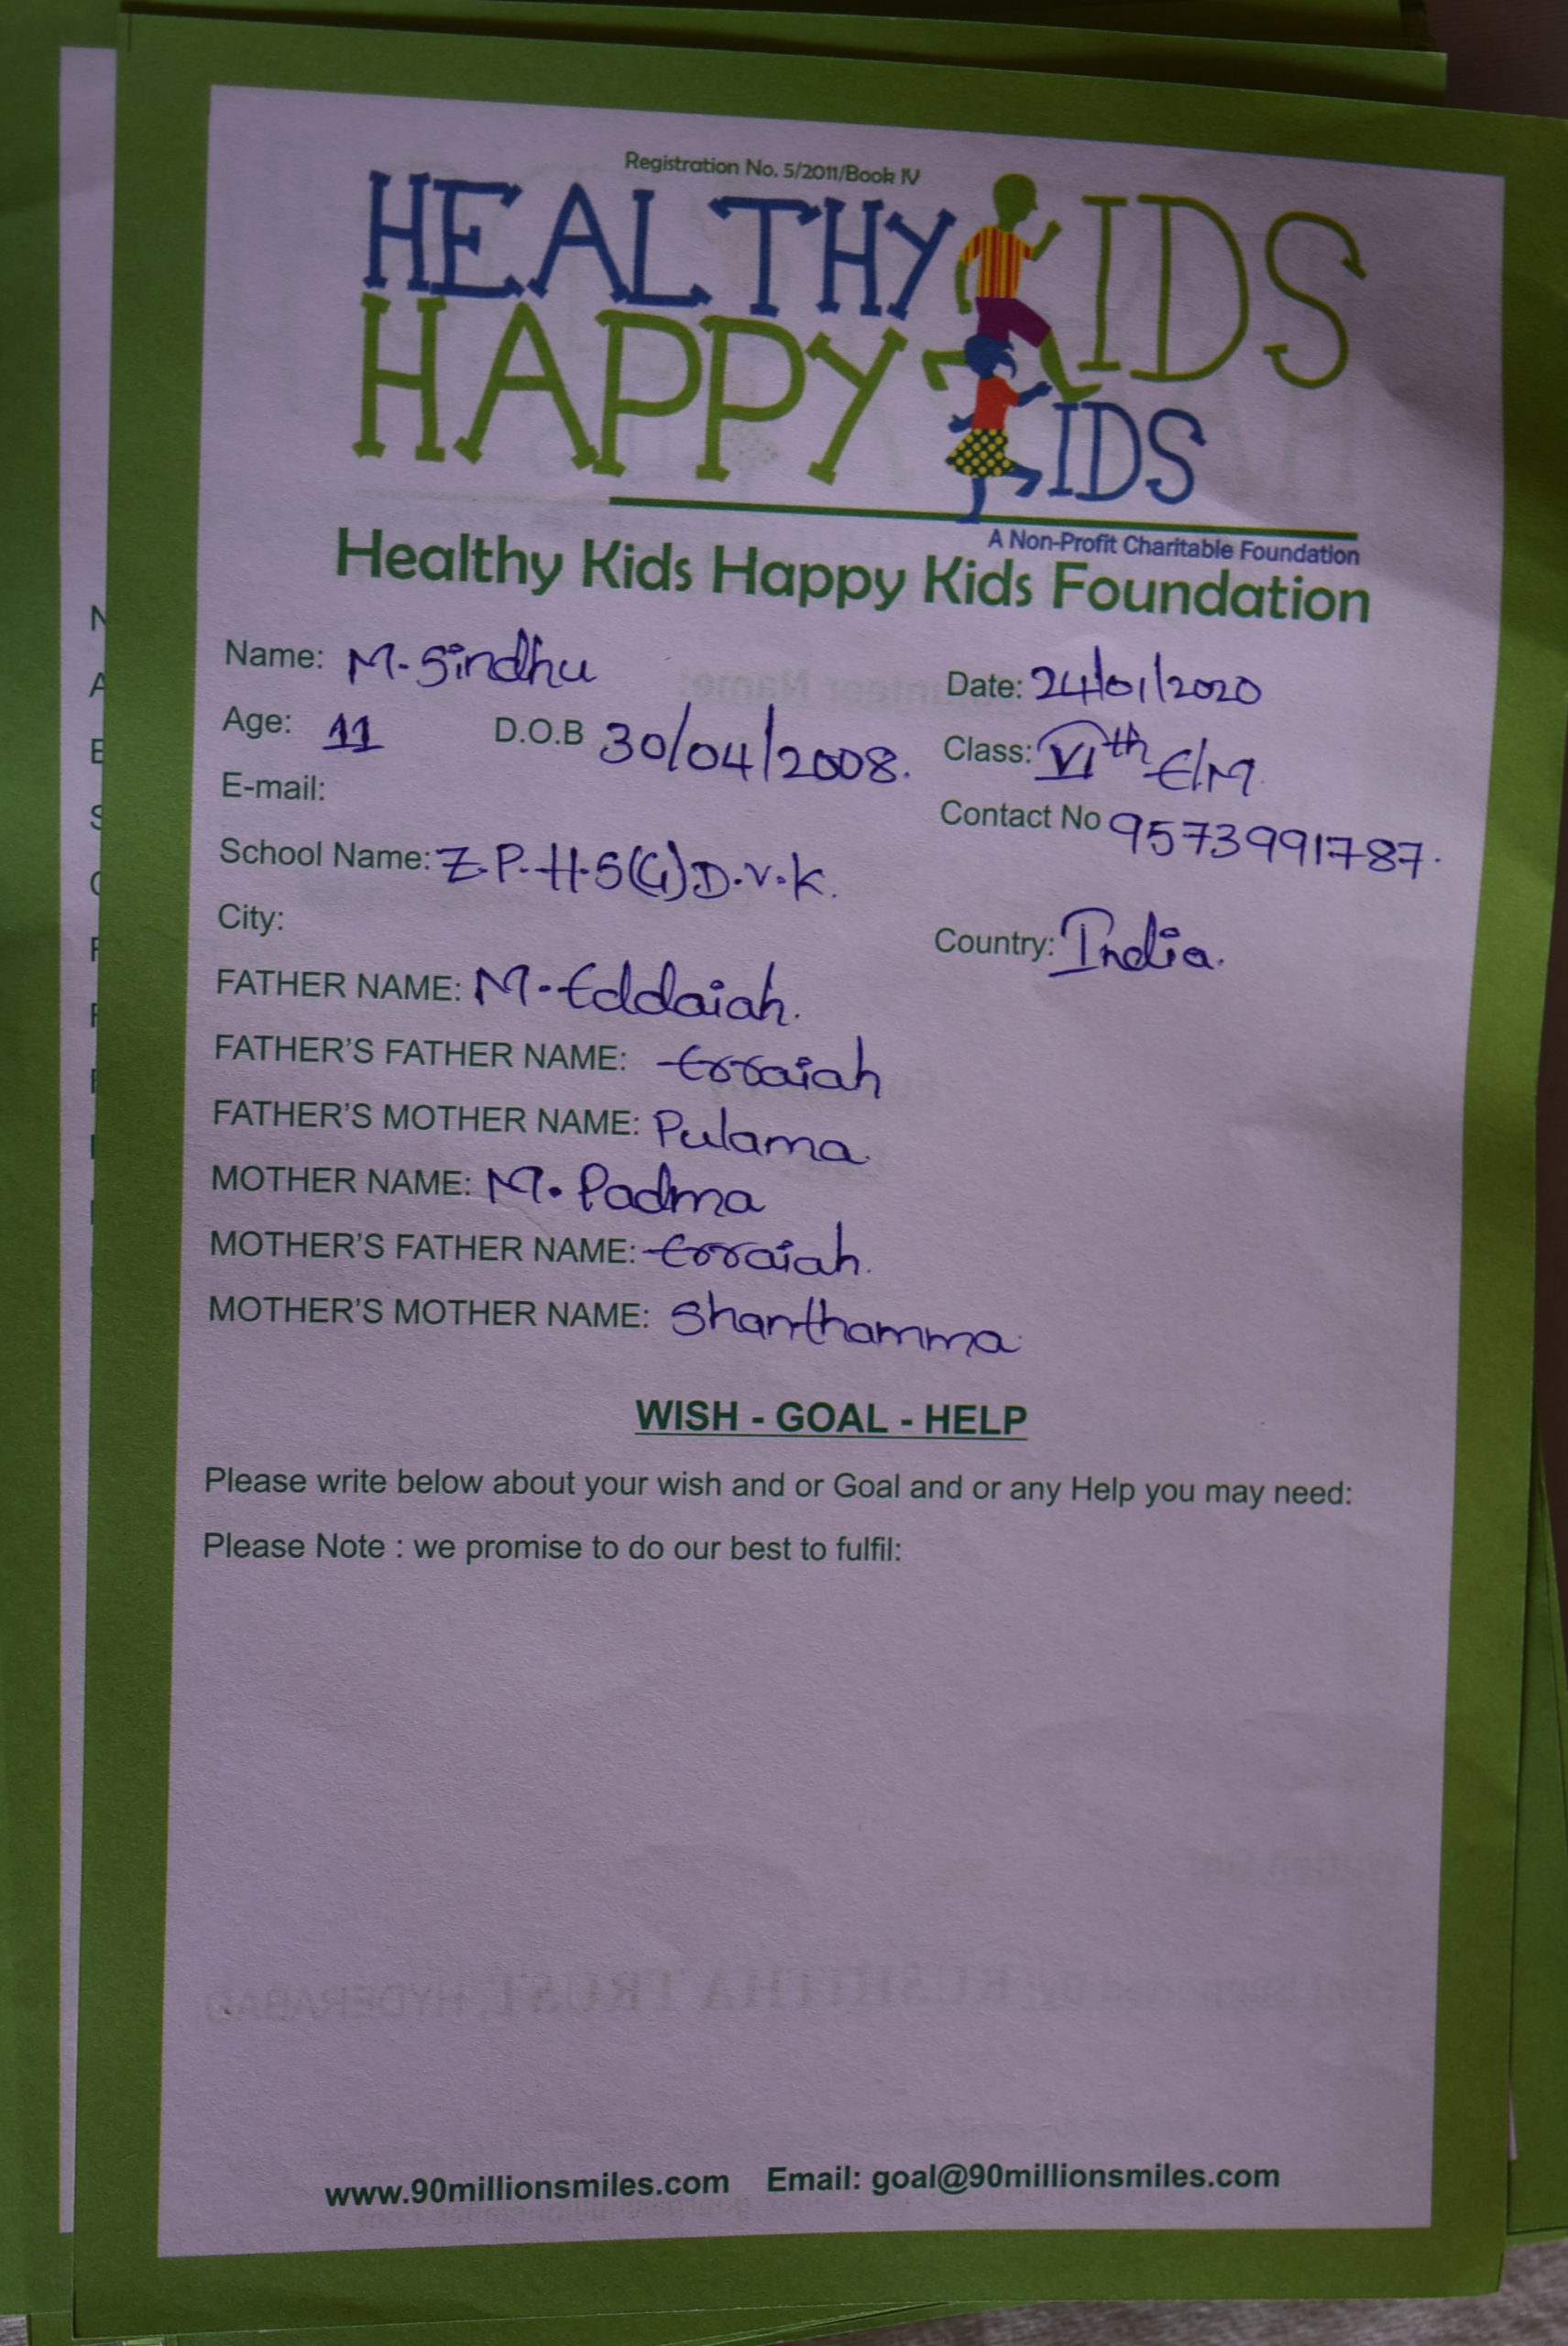 Registration No. 5/2011/Book IV
HEALTHY KIDS
HAPPY KIDS
A Non-Profit Charitable Foundation
Healthy Kids Happy Kids Foundation
Name: M. Sindhu Date: 24/01/2020
Age: 11 D.O.B 30/04/2008. Class: VIth E/M
E-mail: Contact No 9573991787.
School Name: Z.P.H.S(G) D.V.K.
City: Country: India.
FATHER NAME: M. Eddaiah.
FATHER'S FATHER NAME: Erraiah
FATHER'S MOTHER NAME: Pulama.
MOTHER NAME: M. Padma
MOTHER'S FATHER NAME: Erraiah.
MOTHER'S MOTHER NAME: Shanthamma
WISH - GOAL - HELP
Please write below about your wish and or Goal and or any Help you may need:
Please Note : we promise to do our best to fulfil:
www.90millionsmiles.com Email: goal@90millionsmiles.com